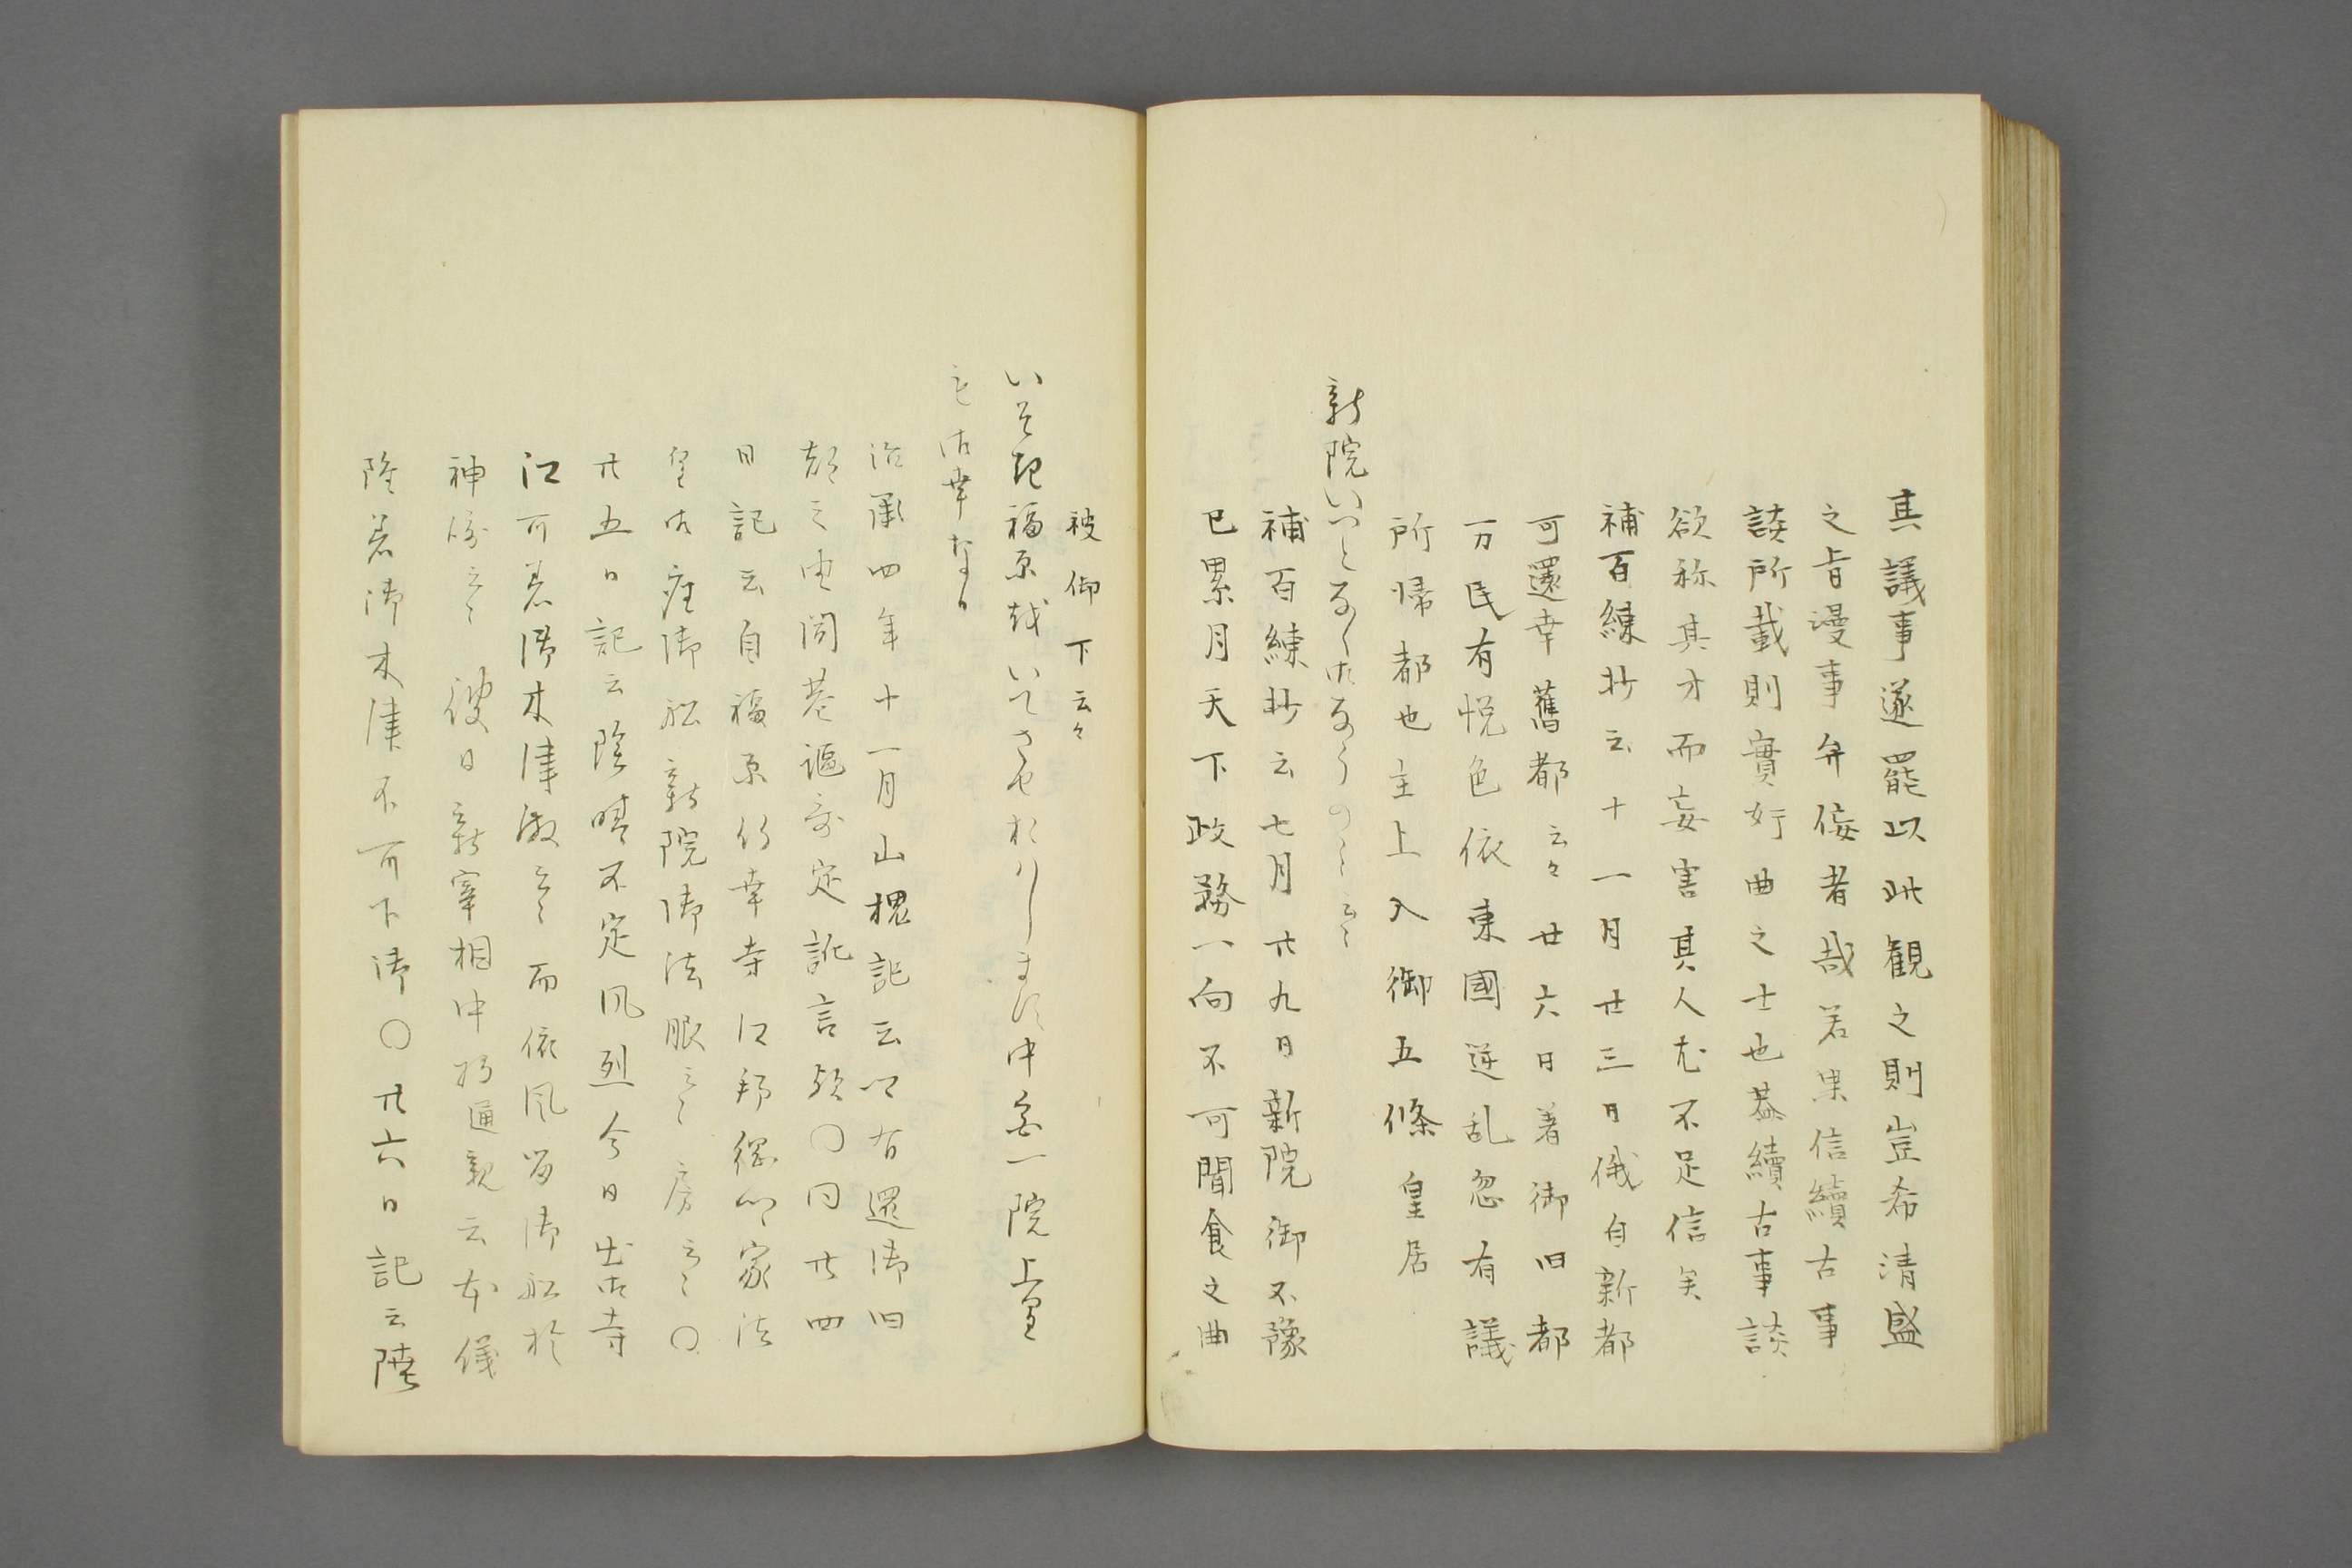 其議事遂罷以此観之則豈希清盛
之旨漫事弁侫者哉若果信續古事
談所載則實奸曲之士也蓋續古事談
欲称其才而妄害其人尤不足信矣
補百練抄云十一月廿三日俄自新都
可還幸舊都云々廿六日著御旧都
万民有悦色依東國逆乱忽有議
所帰都也主上入御五條皇居
新院いつとなく御なうのミ云々
補百練抄云七月廿九日新院御不豫
已累月天下政務一向不可聞食之由
被仰下云々
いそき福原越いてさせおはします中宮一院上皇
も御幸なる
治承四年十一月山槐記云頃日有還御旧
都之由閭巷謳哥定訛言歟〇同廿四
日記云自福原行幸寺江邦綱卿家法
皇御座御船新院御法服云々房云々〇
廿五日記云陰晴不定風烈今日出御寺
江可着御木津殿云々而依風留御船於
神崎云々後日新宰相中将通親云本儀
隆着御木津不可下御〇廿六日記云陰